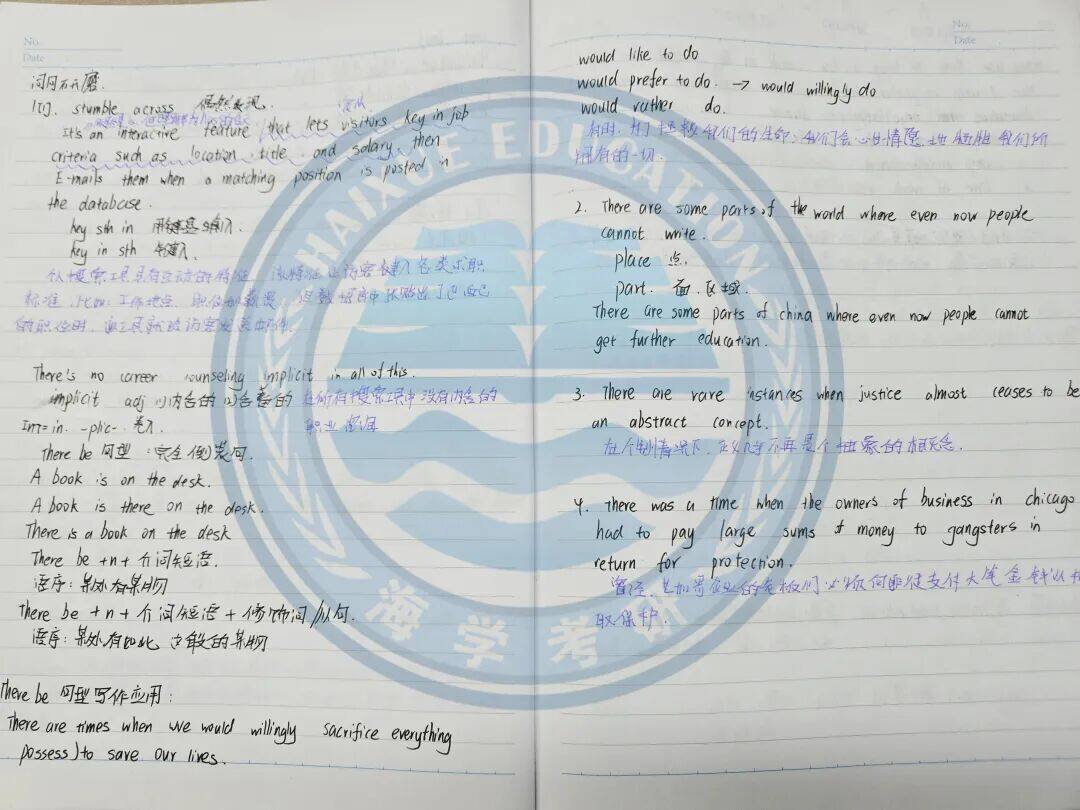 No.
Date
词网不开磨.
stumble across 偶然发现.
It's an interactive feature that lets visitors key in job
criteria such as location, title, and salary, then
E-mails them when a matching position is posted in
the database.
key sth in 用键盘输入.
key in sth 键入.
标准,比如:工作地点、职位和薪资,
的职位时,
There's no career counseling implicit in all of this.
implicit adj 内含的 在所有搜索工具中没有内含的
职业咨询
-plic-
There be 句型:完全倒装句.
A book is on the desk.
A book is there on the desk.
There is a book on the desk
There be +n+介词短语.
语序:某处有某物
There be +n+介词短语+修饰词/从句.
语序:某处有如此这般的某物
There be 句型写作应用:
There are times when we would willingly sacrifice everything
possess) to save our lives.
No.
Date
would like to do
would prefer to do. → would willingly do
would rather do.
有时,为了拯救我们的生命,我们会心甘情愿地牺牲我们所
拥有的一切.
2. There are some parts of the world where even now people
cannot write.
place 点.
part. 面、区域.
There are some parts of china where even now people cannot
get further education.
3. There are rare instances when justice almost ceases to be
an abstract concept.
在个别情况下,正义似乎不再是个抽象的概念.
4. There was a time when the owners of business in chicago
had to pay large sums of money to gangsters in
return for protection.
曾经,芝加哥企业的老板们必须向歹徒支付大笔金钱以换
取保护.
HAIXUE EDUCATION
海学考研